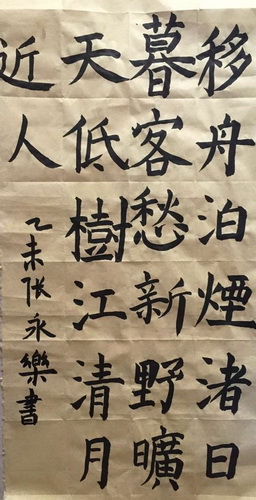 移舟泊煙渚日
暮客愁新野曠
天低樹江清月
近人
乙未张永樂書